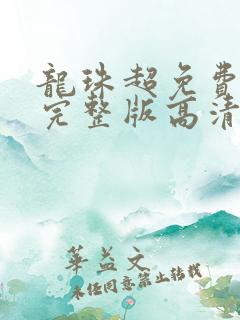 龍珠超免費
完整版高清
華益文
未經同意禁止轉載